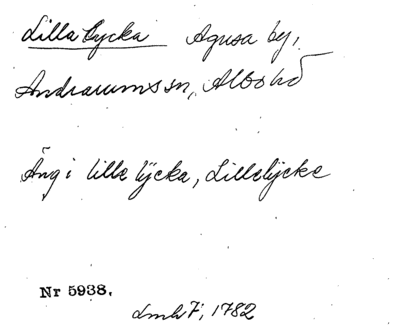 Lilla lycka Agusa by,
Andrarums sn, Albo hd
Äng i lille lÿcka, Lillelÿcke
Nr 5938.
Lmh 7, 1782